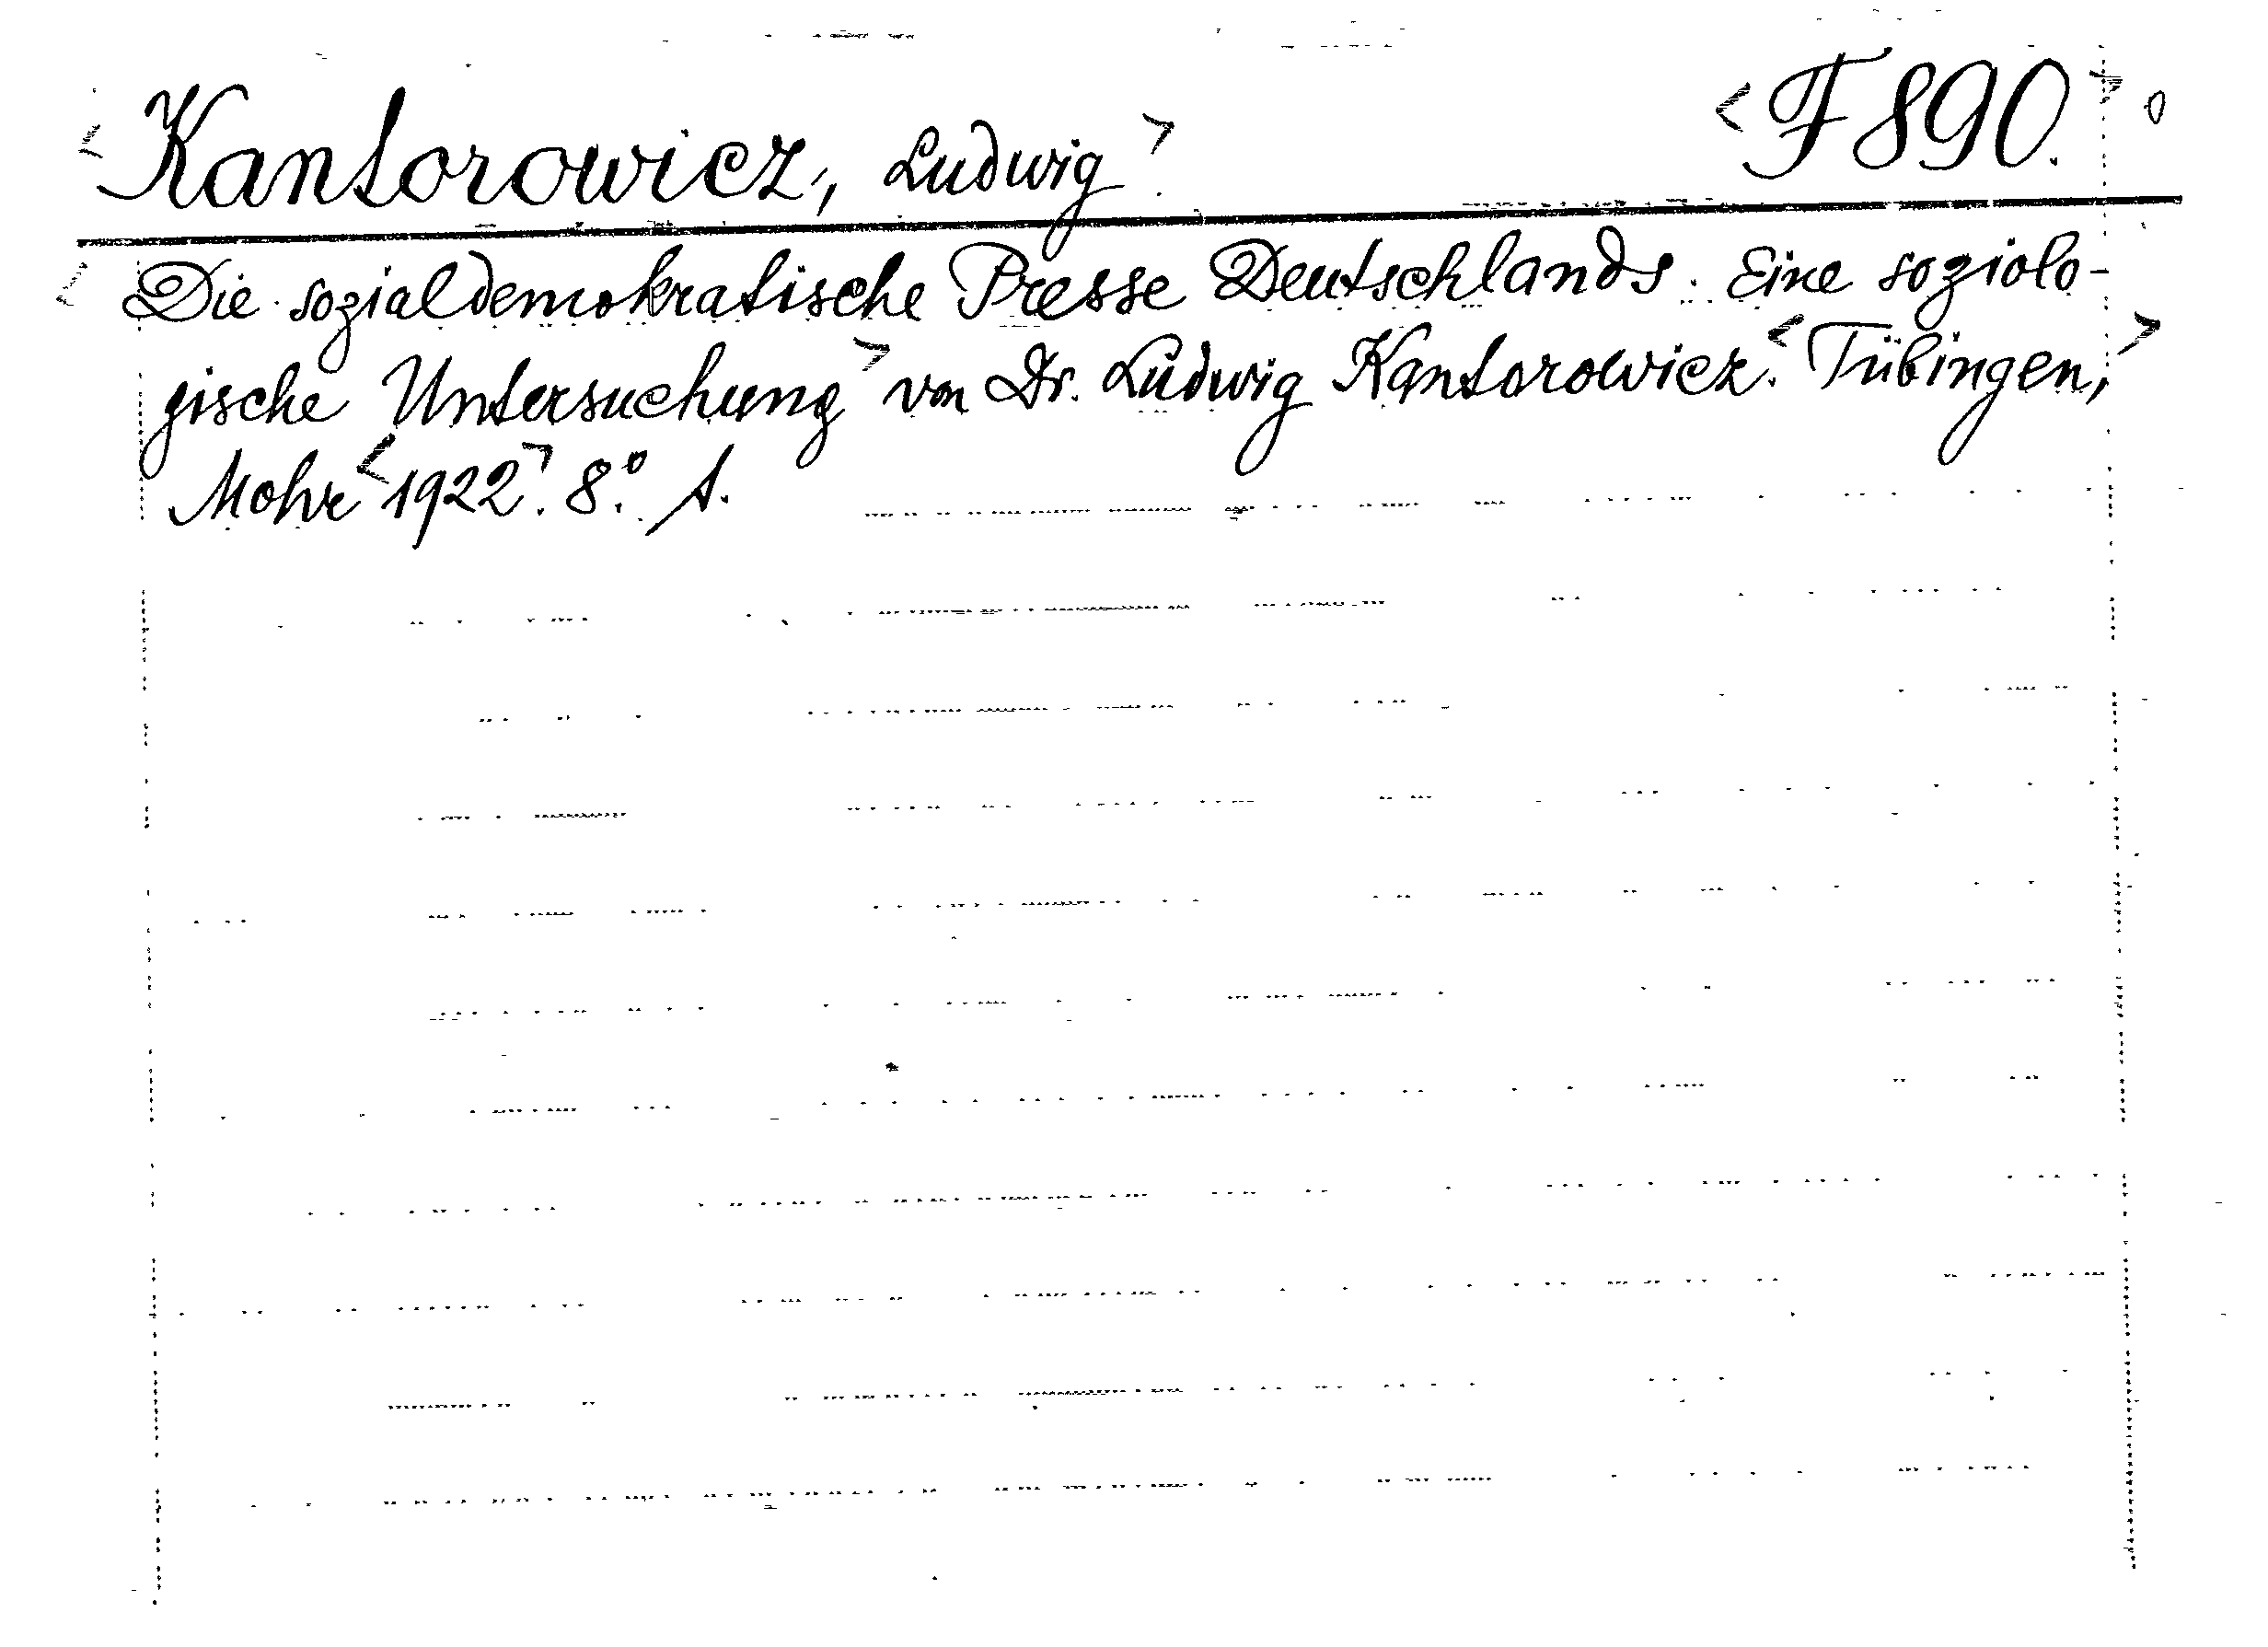 <Kantorowicz, Ludwig>. <F 890.> 0
Die sozialdemokratische Presse Deutschlands. Eine soziolo-
gische Untersuchung> von Dr. Ludwig Kantorowicz. <Tübingen,>
Mohr <1922>. 8°.